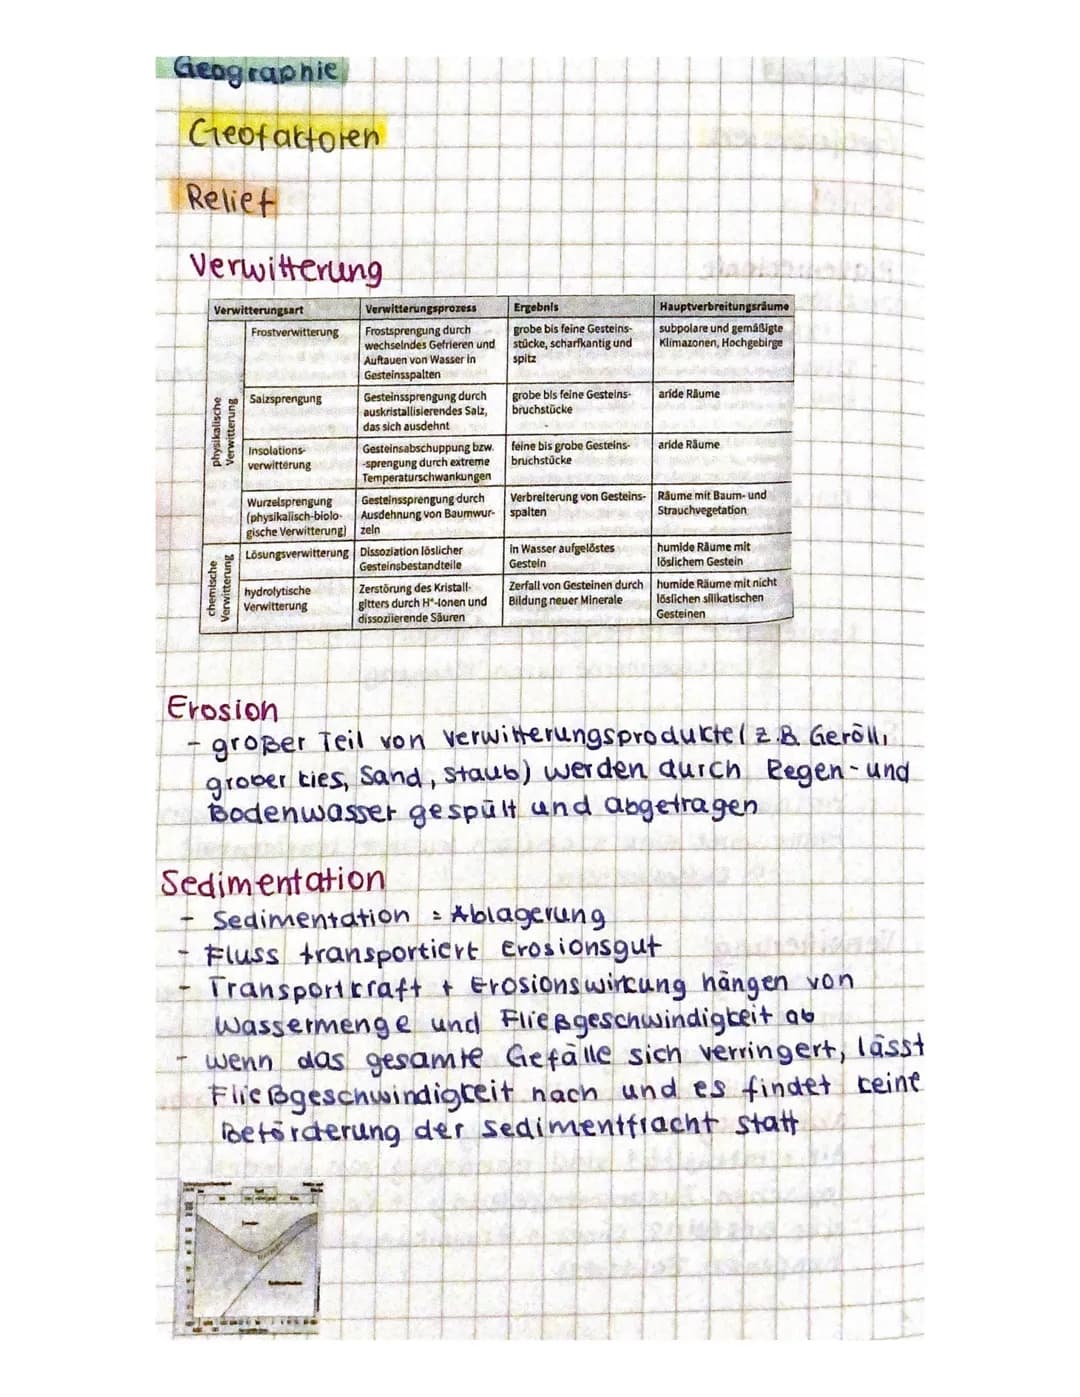 Geographie
Geofaktoren
Relief
Verwitterung
Verwitterungsart Verwitterungsprozess Ergebnis Hauptverbreitungsräume
physikalische Verwitterung
Frostverwitterung Frostsprengung durch wechselndes Gefrieren und Auftauen von Wasser in Gesteinsspalten grobe bis feine Gesteins-stücke, scharfkantig und spitz subpolare und gemäßigte Klimazonen, Hochgebirge
Salzsprengung Gesteinssprengung durch auskristallisierendes Salz, das sich ausdehnt grobe bis feine Gesteins-bruchstücke aride Räume
Insolations-verwitterung Gesteinsabschuppung bzw. -sprengung durch extreme Temperaturschwankungen feine bis grobe Gesteins-bruchstücke aride Räume
Wurzelsprengung (physikalisch-biolo-gische Verwitterung) Gesteinssprengung durch Ausdehnung von Baumwur-zeln Verbreiterung von Gesteins-spalten Räume mit Baum- und Strauchvegetation
chemische Verwitterung
Lösungsverwitterung Dissoziation löslicher Gesteinsbestandteile in Wasser aufgelöstes Gestein humide Räume mit löslichem Gestein
hydrolytische Verwitterung Zerstörung des Kristall-gitters durch H⁺-Ionen und dissoziierende Säuren Zerfall von Gesteinen durch Bildung neuer Minerale humide Räume mit nicht löslichen silikatischen Gesteinen
Erosion
- großer Teil von Verwitterungsprodukte (z.B. Geröll,
grober kies, Sand, Staub) werden durch Regen- und
Bodenwasser gespült und abgetragen
Sedimentation
- Sedimentation = Ablagerung
- Fluss transportiert Erosionsgut
- Transportkraft + Erosionswirkung hängen von
Wassermenge und Fließgeschwindigkeit ab
- wenn das gesamte Gefälle sich verringert, lässt
Fließgeschwindigkeit nach und es findet keine
Beförderung der Sedimentfracht statt